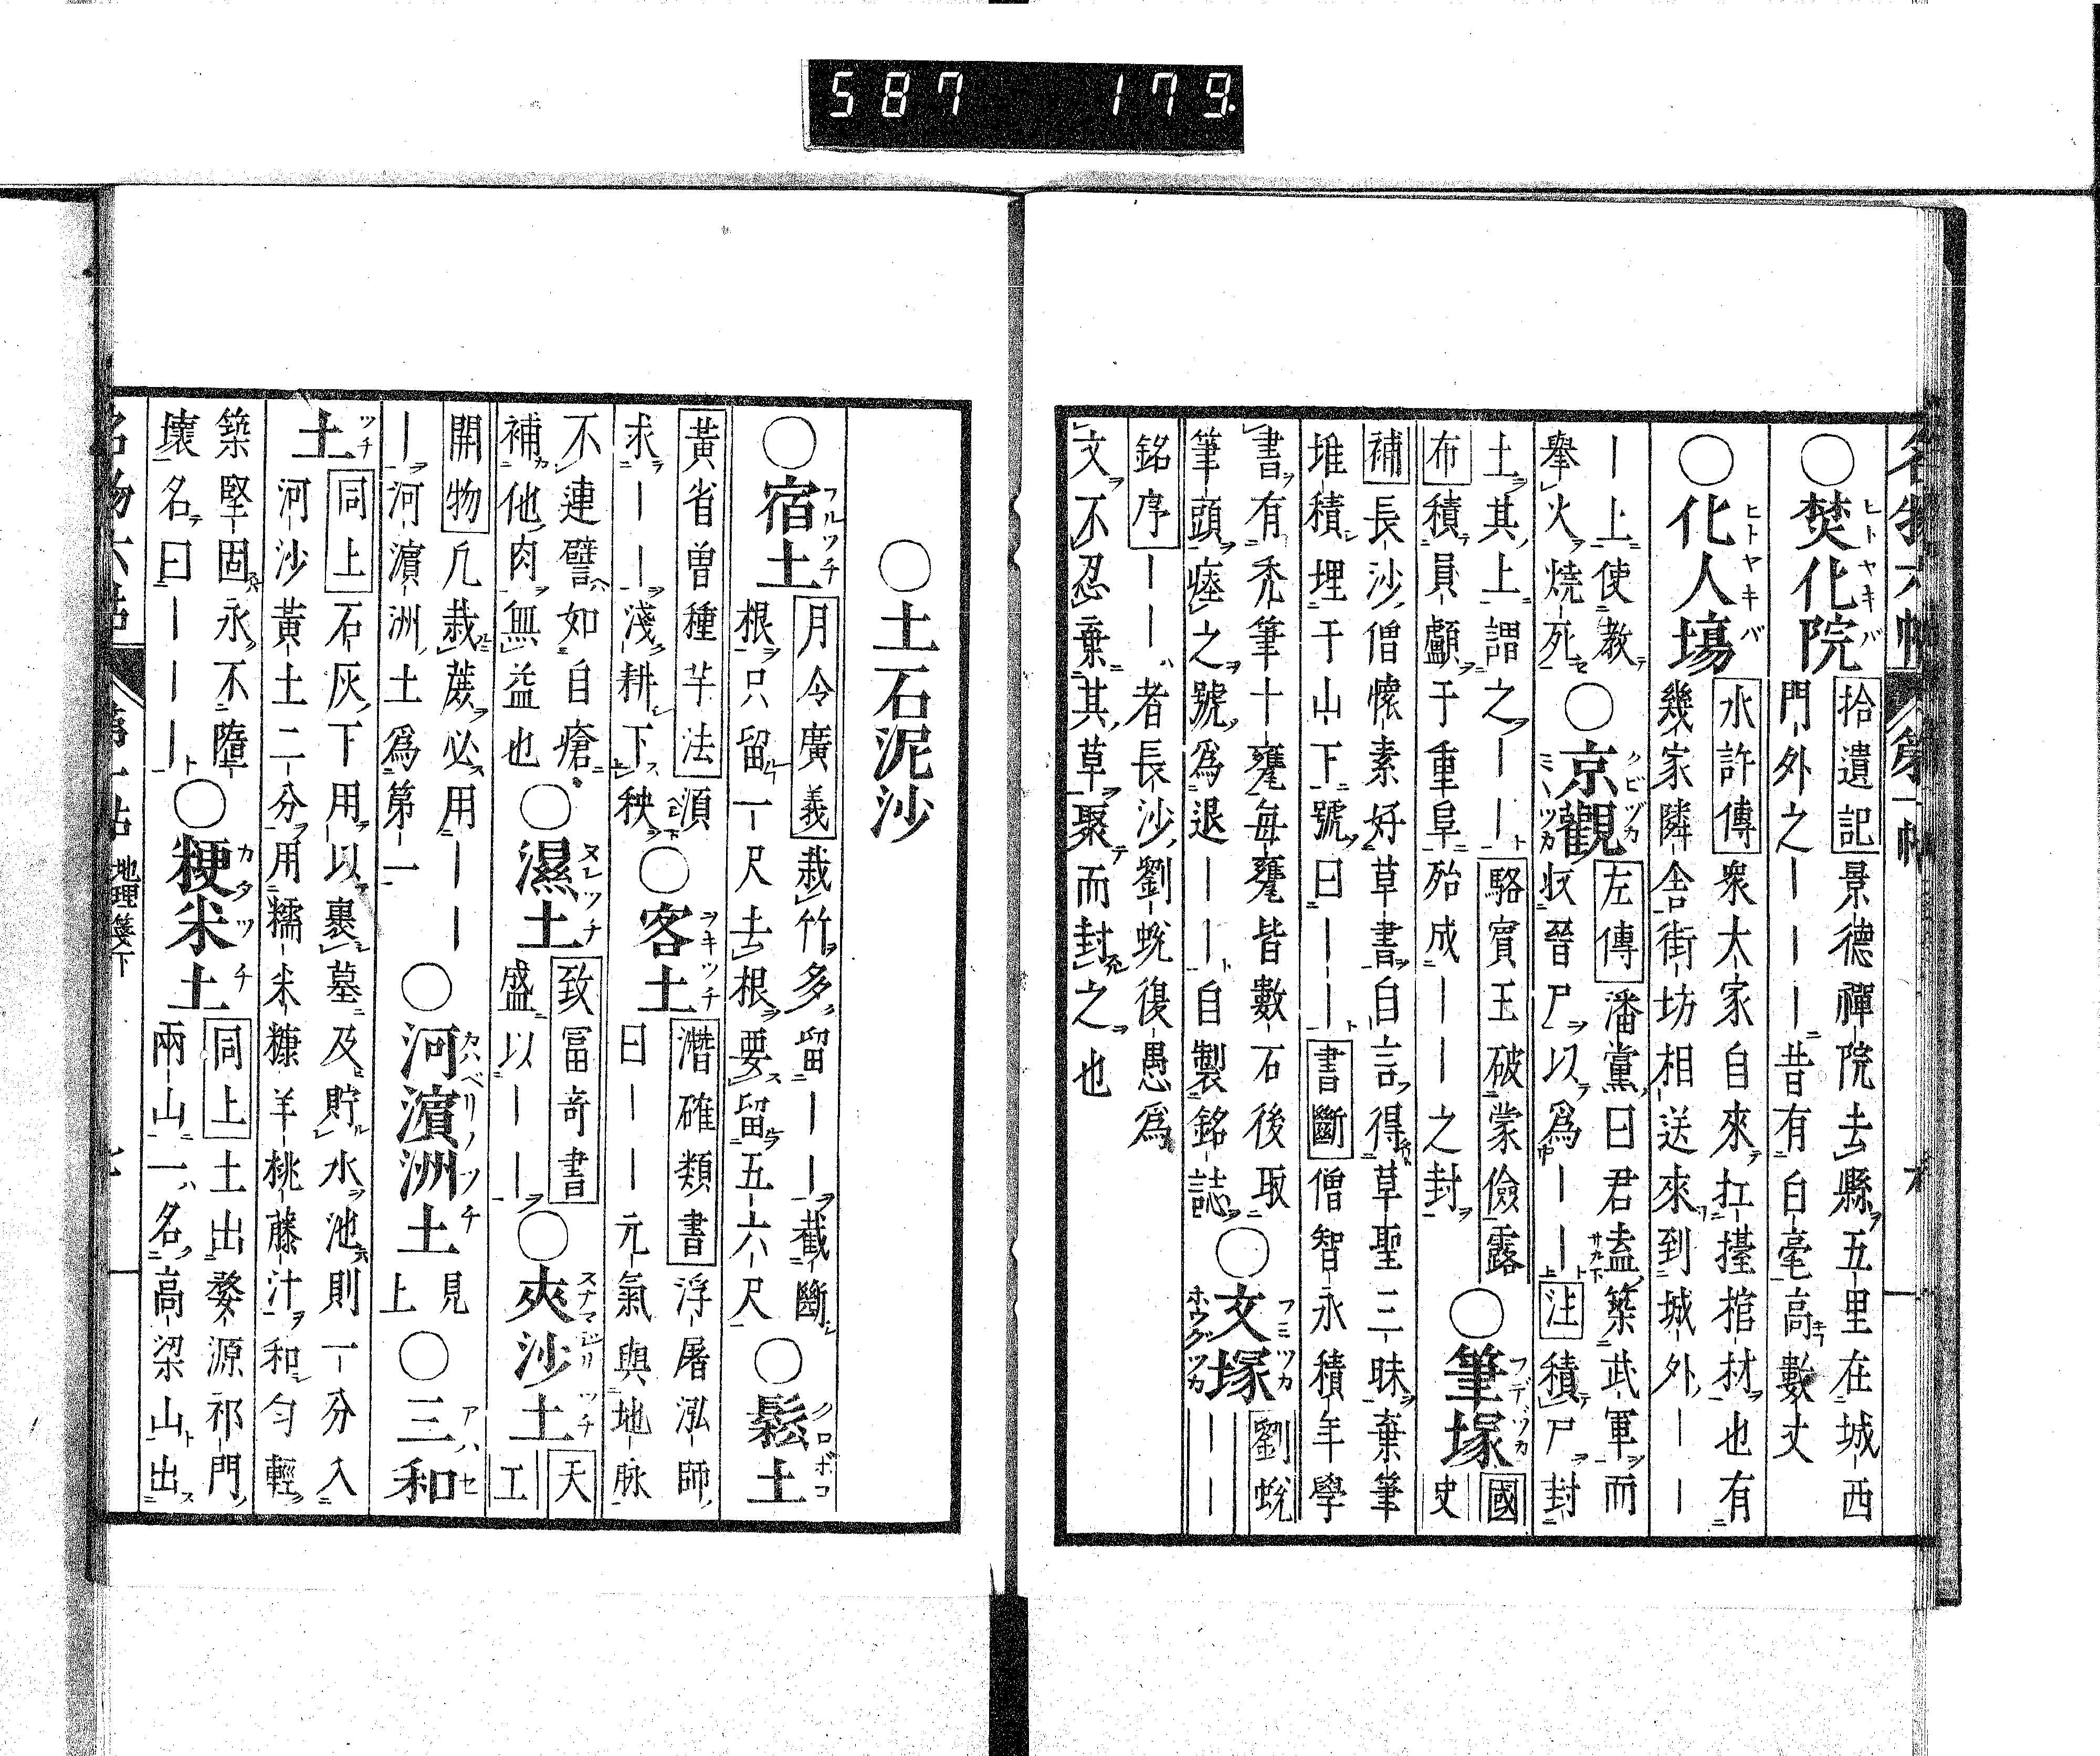 587 179
○焚化院 ヒトヤキバ 拾遺記 景德禪院去縣五里在城西
門外之｜｜｜昔有白毫高數丈
○化人塲 ヒトヤキバ 水許傳 衆大家自來扛擡棺材也有
幾家隣舍街坊相送來到城外｜｜
｜上使敎
擧火燒死
○京觀 クビヅカ 左傳 潘黨曰君盍築武軍而
收晉尸以爲｜｜ 注 積尸封
土其上謂之｜｜ 駱賓王破蒙儉露
布 積員顱于重阜殆成｜｜之封
○筆塚 フデヅカ 國
史
補 長沙僧懷素好草書自言得草聖三昧棄筆
堆積埋于山下號曰｜｜ 書斷 僧智永積年學
書有禿筆十甕每甕皆數石後取
筆頭瘞之號爲退｜｜自製銘誌
○文塚 フミツカ ホウグツカ 劉蛻
｜｜
銘序 ｜｜者長沙劉蛻復愚爲
文不忍棄其草聚而封之也
○土石泥沙
○宿土 フルツチ 月令廣義 栽竹多留｜｜截斷
根只留一尺去根要留五六尺
○鬆土 クロボコ
黃省曽種芋法 須
求｜｜淺耕下秧
○客土 ヲキツチ 潛確類書 浮屠泓師
曰｜｜元氣與地脉
不連譬如自瘡
補他肉無益也
○濕土 ヌレツチ 致富奇書
盛以｜｜
○夾沙土 スナマジリツチ 天
工
開物 凡栽蔗必用｜｜
｜河濵洲土爲第一
○河濵洲土 カハベリノツチ 見
上
○三和 アハセ
土 ツチ 同上 石灰下用以裹墓及貯水池則一分入
河沙黃土二分用糯米糠羊桃藤汁和勻輕
築堅固永不隳
壞名曰｜｜｜
○粳米土 カタツチ 同上 土出婺源祁門
兩山一名高梁山出
地理箋下